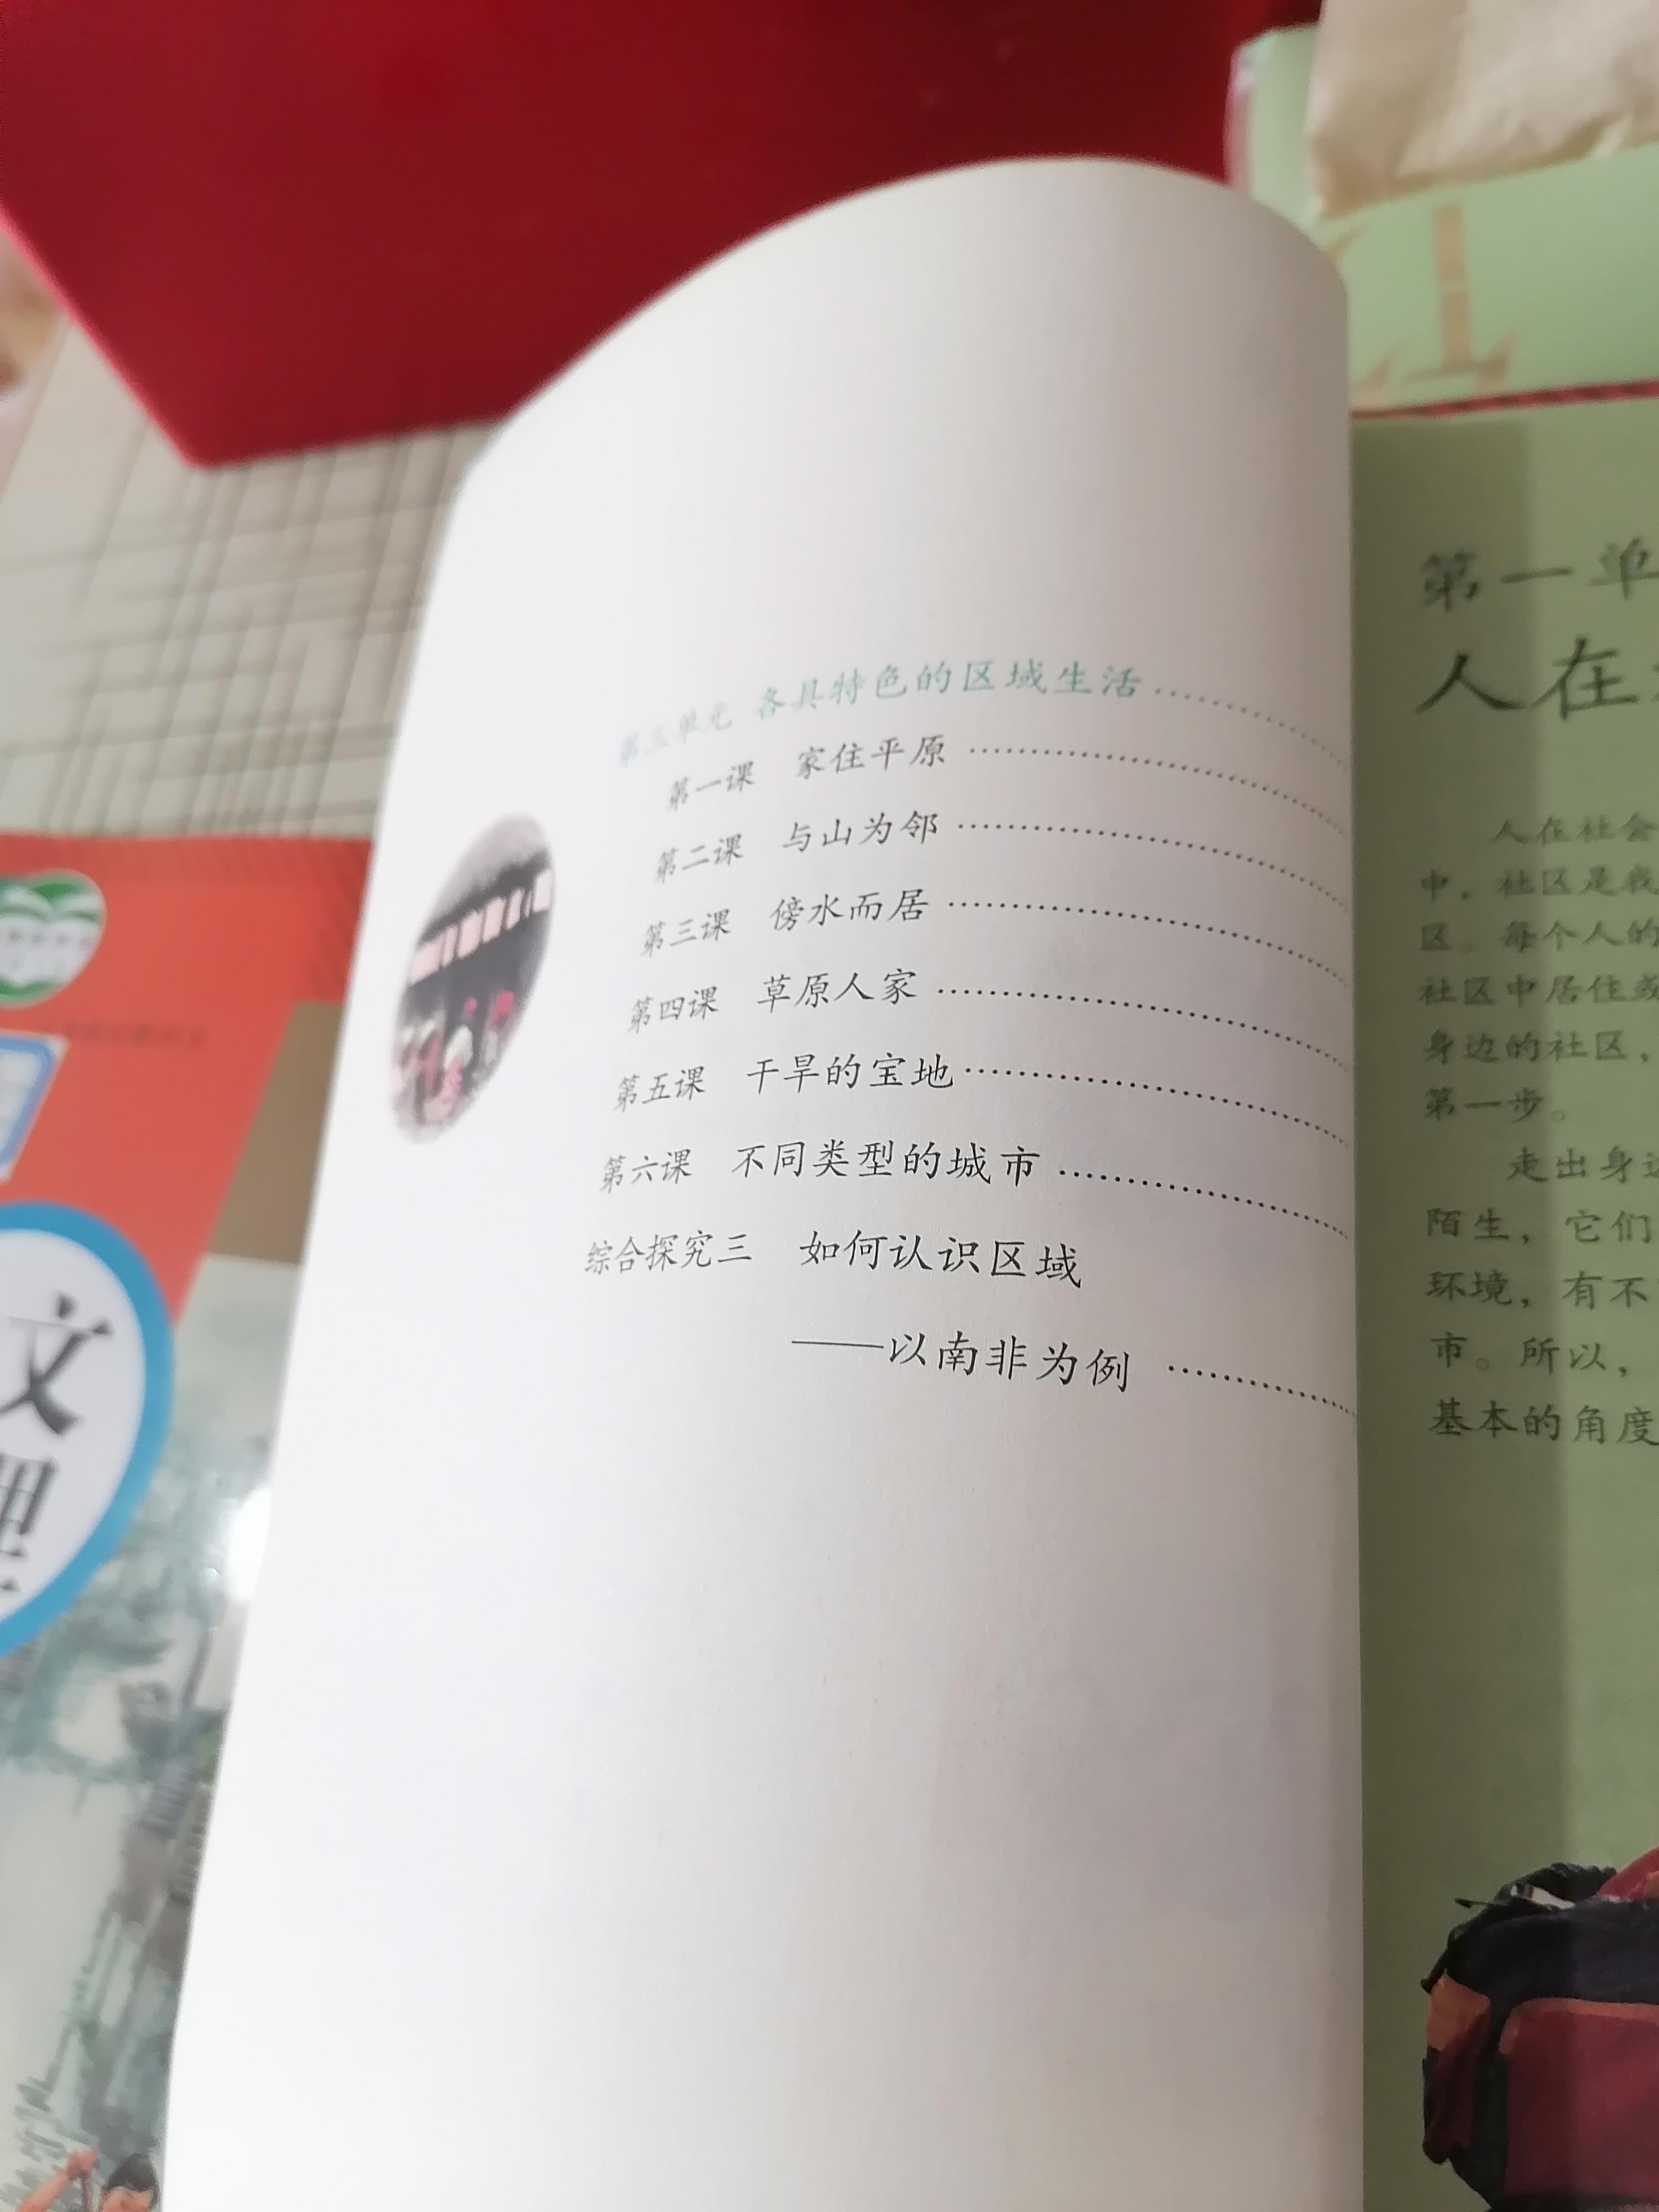 第三单元 各具特色的区域生活
第一课 家住平原
第二课 与山为邻
第三课 傍水而居
第四课 草原人家
第五课 干旱的宝地
第六课 不同类型的城市
综合探究三 如何认识区域
——以南非为例
第一单
人在
人在社会
中，社区是我
区。每个人的
社区中居住或
身边的社区，
第一步。
走出身边
陌生，它们
环境，有不
市。所以，
基本的角度
文